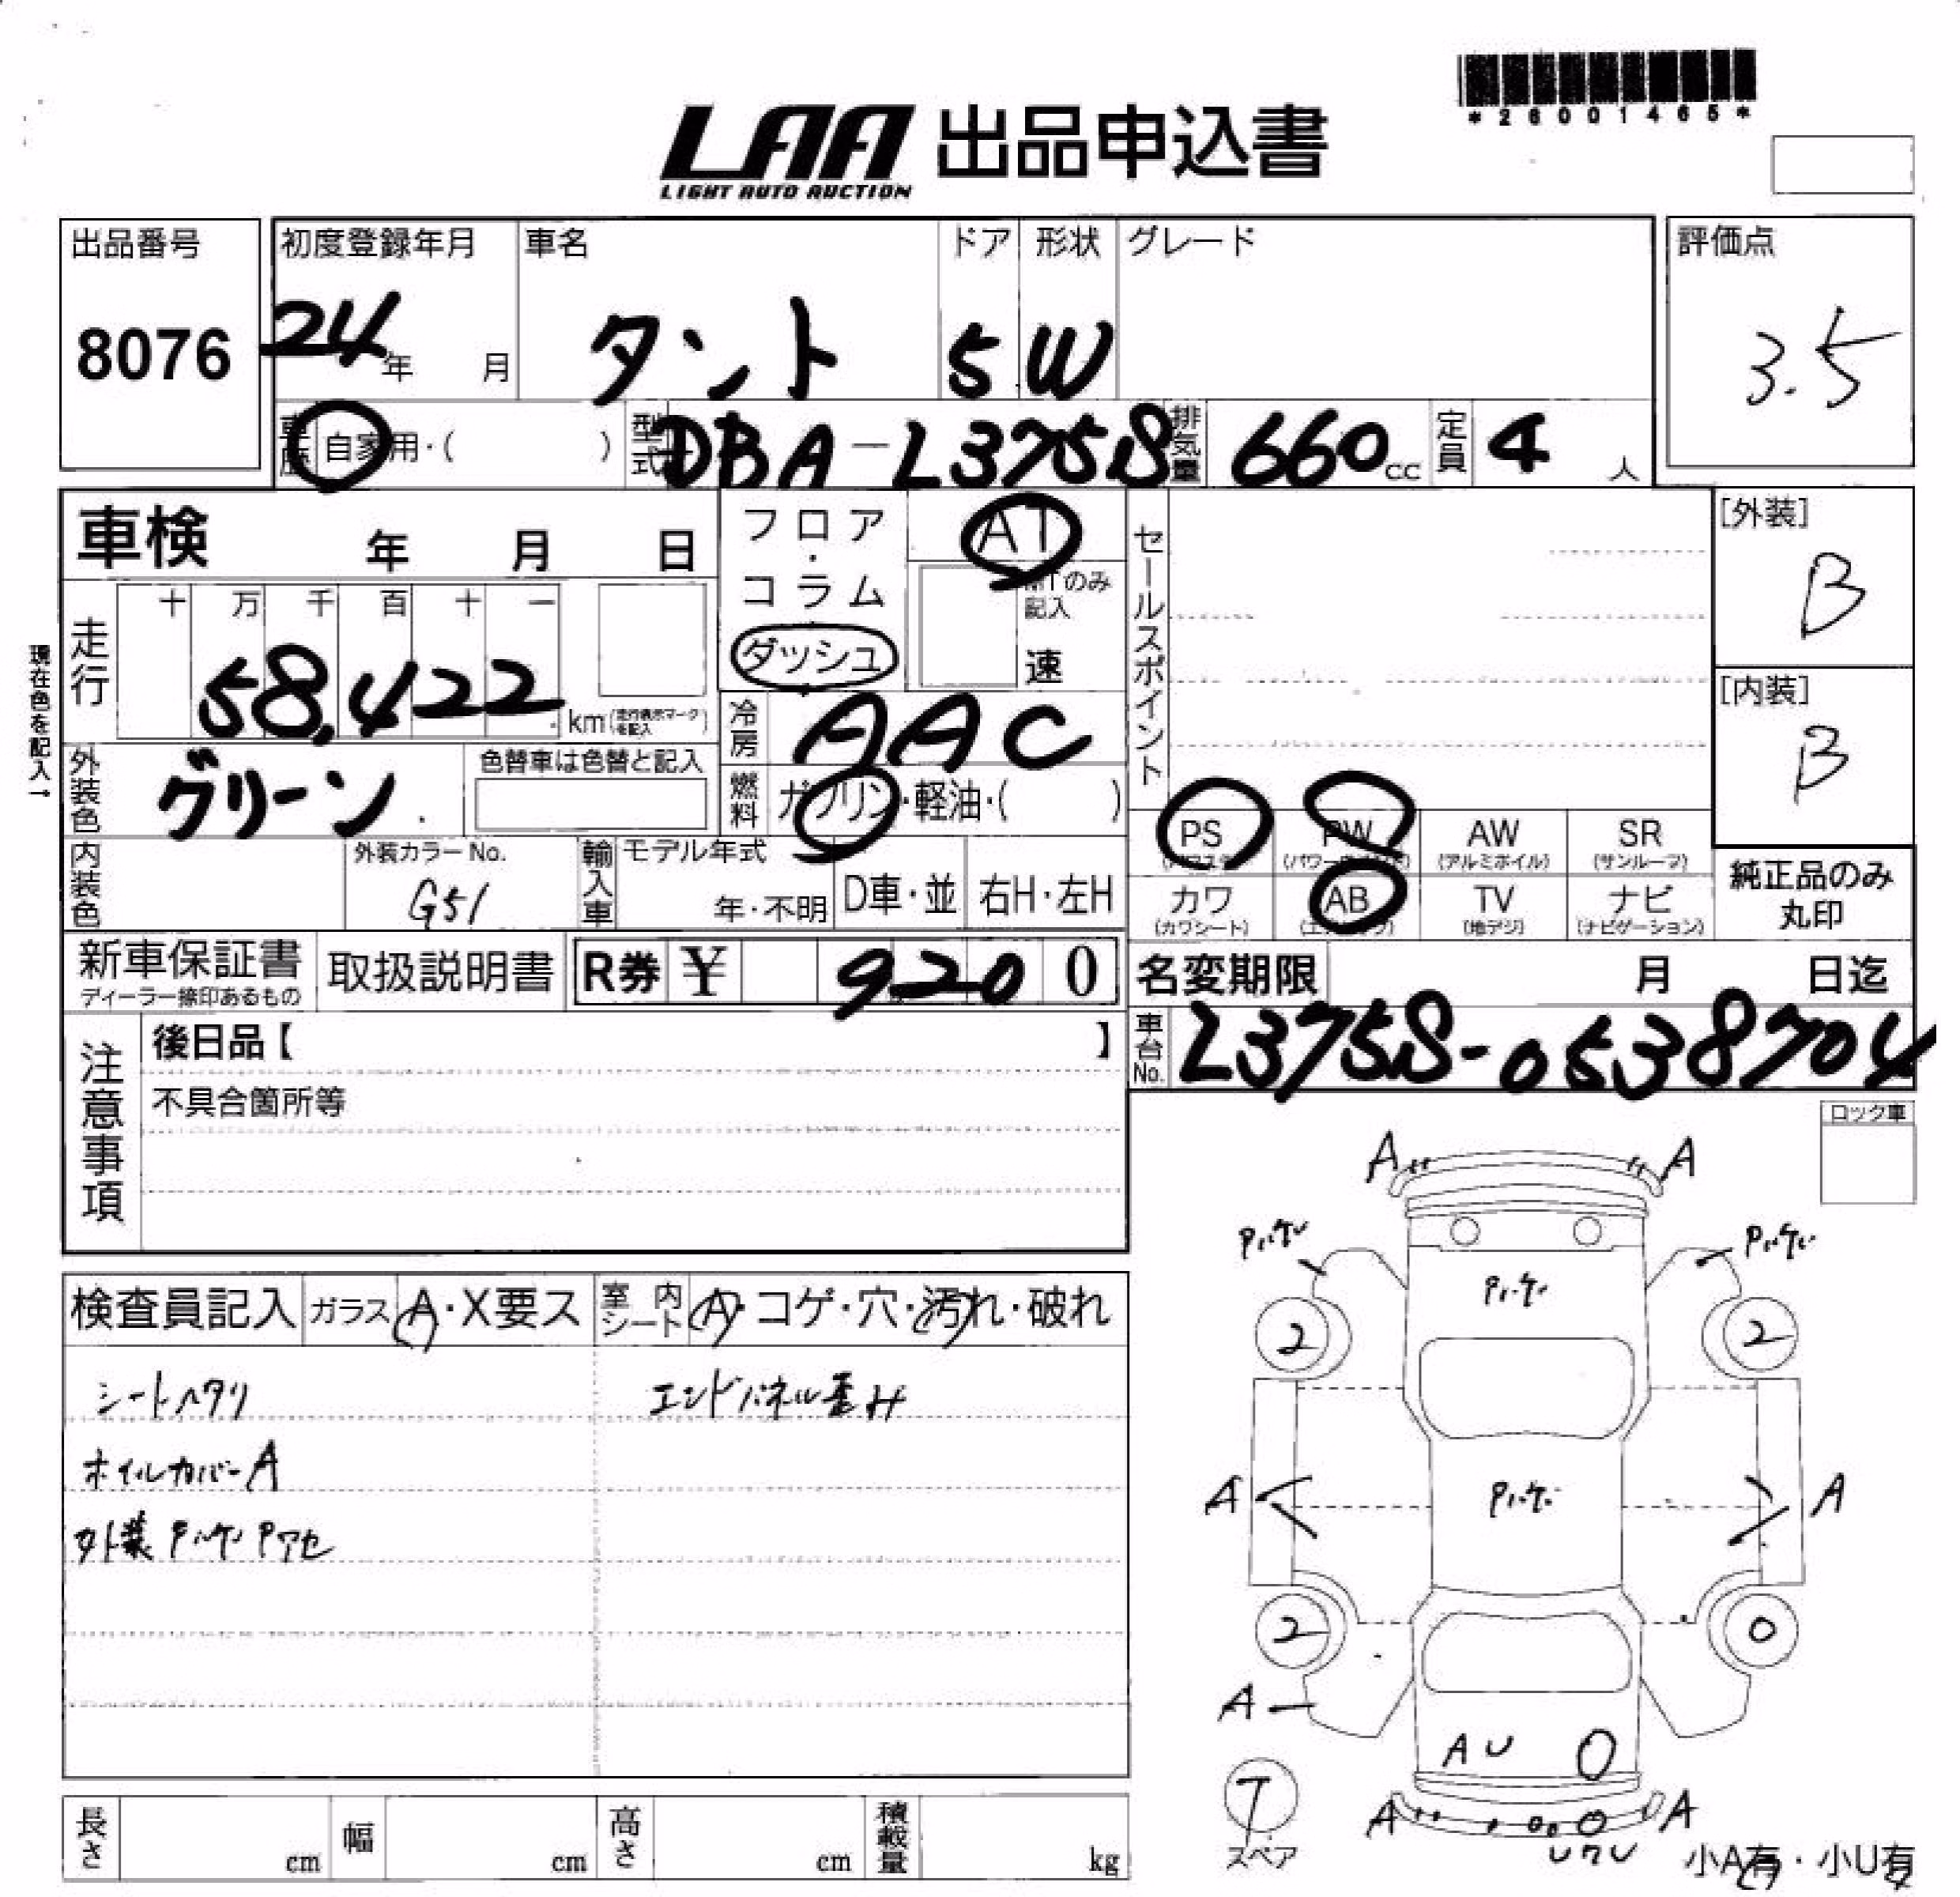 *26001465*
LAA 出品申込書
LIGHT AUTO AUCTION
出品番号 初度登録年月 車名 ドア 形状 グレード 評価点
8076 24年 月 タント 5 W 3.5
車歴 自家用・( ) 型式 DBA-L375S 排気量 660cc 定員 4人
車検 年 月 日 フロア・コラム・ダッシュ AT セールスポイント [外装]
B
MTのみ記入
速
現在色を記入→
走行 十 万 千 百 十 一
58,422 km(走行表示マークを記入)
[内装]
B
冷房 AAC
外装色 グリーン 色替車は色替と記入 燃料 ガソリン・軽油・( )
PS PW AW SR
(パワステ) (パワーウインドウ) (アルミホイル) (サンルーフ)
内装色 外装カラーNo. G51 輸入車 モデル年式 年・不明 D車・並 右H・左H
カワ AB TV ナビ
(カワシート) (エアバッグ) (地デジ) (ナビゲーション)
純正品のみ
丸印
新車保証書 取扱説明書 R券 ¥ 9200
ディーラー捺印あるもの
名変期限 月 日迄
車台No. L375S-0538704
注意事項 後日品【 】
不具合箇所等
ロック車
検査員記入 ガラス A・X要ス 室内シート A・コゲ・穴・汚れ・破れ
シートヘタリ エンドパネル歪み
ホイルカバーA
外装
A A
2 2
A A
2 0
A
AU
T
スペア
A A
小A有・小U有
長さ cm 幅 cm 高さ cm 積載量 kg